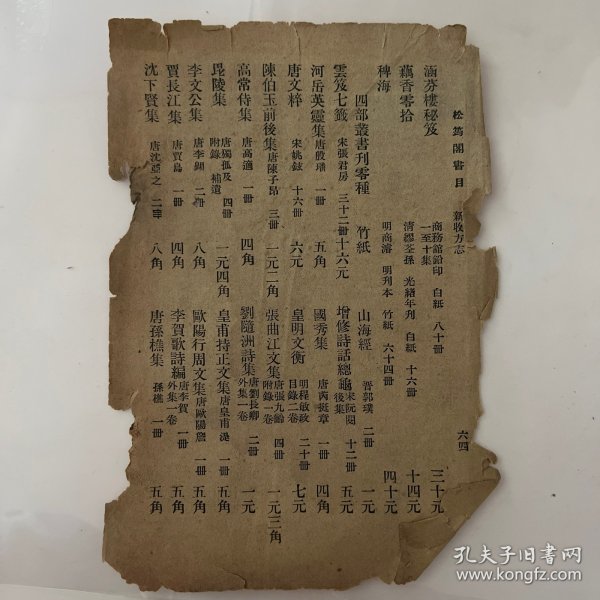 松筠閣書目 新收方志 六四
涵芬樓秘笈 商務館鉛印 白紙 一至十集 八十冊 三十元
藕香零拾 清繆荃孫 光緒年刊 白紙 十六冊 十四元
稗海 明商濬 明刊本 竹紙 六十四冊 四十元
四部叢書刊零種 竹紙
山海經 晉郭璞 二冊 一元
雲笈七籤 宋張君房 三十二冊 十六元
增修詩話總龜 宋阮閱 後集 十二冊 五元
河岳英靈集 唐殷璠 一冊 五角
國秀集 唐芮挺章 一冊 四角
唐文粹 宋姚鉉 十六冊 六元
皇明文衡 明程敏政 目錄二卷 二十冊 七元
陳伯玉前後集 唐陳子昂 三冊 一元二角
張曲江文集 唐張九齡 附錄一卷 四冊 一元三角
高常侍集 唐高適 一冊 四角
劉隨洲詩集 唐劉長卿 外集一卷 二冊 一元
毘陵集 唐獨孤及 附錄 補遺 四冊 一元四角
皇甫持正文集 唐皇甫湜 一冊 五角
李文公集 唐李翱 二冊 八角
歐陽行周文集 唐歐陽詹 一冊 五角
賈長江集 唐賈島 一冊 四角
李賀歌詩編 唐李賀 外集一卷 一冊 五角
沈下賢集 唐沈亞之 二冊 八角
唐孫樵集 孫樵 一冊 五角
孔夫子旧书网
www.kongfz.com